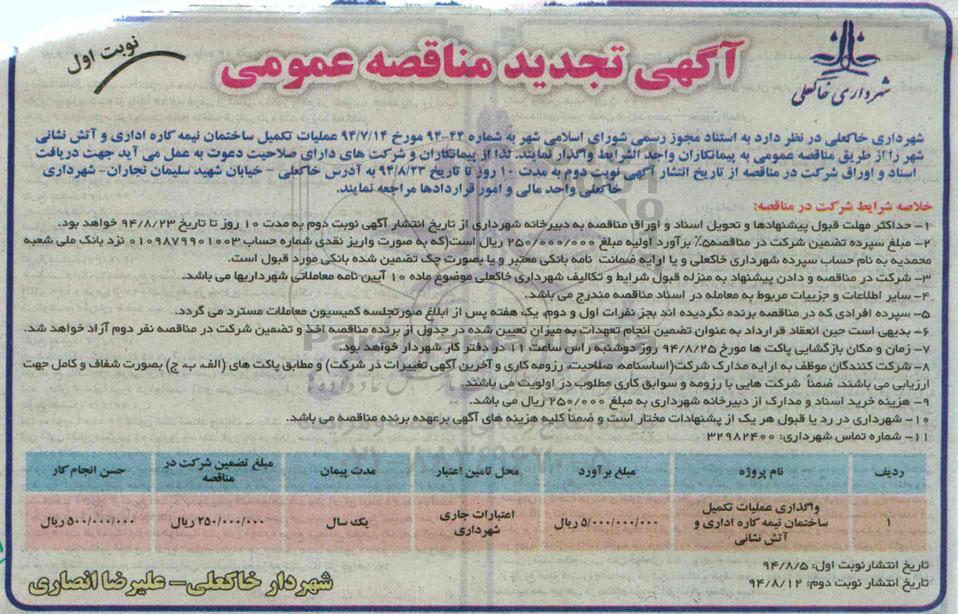 شهرداری خاکعلی
آگهی تجدید مناقصه عمومی
نوبت اول
شهرداری خاکعلی در نظر دارد به استناد مجوز رسمی شورای اسلامی شهر به شماره ۴۳-۹۴ مورخ ۹۴/۷/۱۴ عملیات تکمیل ساختمان نیمه کاره اداری و آتش نشانی
شهر را از طریق مناقصه عمومی به پیمانکاران واجد الشرایط واگذار نمایند. لذا از پیمانکاران و شرکت های دارای صلاحیت دعوت به عمل می آید جهت دریافت
اسناد و اوراق شرکت در مناقصه از تاریخ انتشار آگهی نوبت دوم به مدت ۱۰ روز تا تاریخ ۹۴/۸/۲۳ به آدرس خاکعلی - خیابان شهید سلیمان نجاران- شهرداری
خاکعلی واحد مالی و امور قراردادها مراجعه نمایند.
خلاصه شرایط شرکت در مناقصه:
۱- حداکثر مهلت قبول پیشنهادها و تحویل اسناد و اوراق مناقصه به دبیرخانه شهرداری از تاریخ انتشار آگهی نوبت دوم به مدت ۱۰ روز تا تاریخ ۹۴/۸/۲۳ خواهد بود.
۲- مبلغ سپرده تضمین شرکت در مناقصه۵٪ برآورد اولیه مبلغ ۲۵۰/۰۰۰/۰۰۰ ریال است(که به صورت واریز نقدی شماره حساب ۰۱۰۹۸۷۹۹۰۱۰۰۳ نزد بانک ملی شعبه
محمدیه به نام حساب سپرده شهرداری خاکعلی و یا ارایه ضمانت نامه بانکی معتبر و یا بصورت چک تضمین شده بانکی مورد قبول است.
۳- شرکت در مناقصه و دادن پیشنهاد به منزله قبول شرایط و تکالیف شهرداری خاکعلی موضوع ماده ۱۰ آیین نامه معاملاتی شهرداریها می باشد.
۴- سایر اطلاعات و جزییات مربوط به معامله در اسناد مناقصه مندرج می باشد.
۵- سپرده افرادی که در مناقصه برنده نگردیده اند بجز نفرات اول و دوم، یک هفته پس از ابلاغ صورتجلسه کمیسیون معاملات مسترد می گردد.
۶- بدیهی است حین انعقاد قرارداد به عنوان تضمین انجام تعهدات به میزان تعیین شده در جدول از برنده مناقصه اخذ و تضمین شرکت در مناقصه نفر دوم آزاد خواهد شد.
۷- زمان و مکان بازگشایی پاکت ها مورخ ۹۴/۸/۲۵ روز دوشنبه راس ساعت ۱۱ در دفتر کار شهردار خواهد بود.
۸- شرکت کنندگان موظف به ارایه مدارک شرکت(اساسنامه، صلاحیت، رزومه کاری و آخرین آگهی تغییرات در شرکت) و مطابق پاکت های (الف، ب، ج) بصورت شفاف و کامل جهت
ارزیابی می باشند. ضمناً شرکت هایی با رزومه و سوابق کاری مطلوب در اولویت می باشند.
۹- هزینه خرید اسناد و مدارک از دبیرخانه شهرداری به مبلغ ۲۵۰/۰۰۰ ریال می باشد.
۱۰- شهرداری در رد یا قبول هر یک از پشنهادات مختار است و ضمناً کلیه هزینه های آگهی برعهده برنده مناقصه می باشد.
۱۱- شماره تماس شهرداری: ۳۲۹۸۲۴۰۰
ردیف نام پروژه مبلغ برآورد محل تامین اعتبار مدت پیمان مبلغ تضمین شرکت در مناقصه حسن انجام کار
۱ واگذاری عملیات تکمیل ساختمان نیمه کاره اداری و آتش نشانی ۵/۰۰۰/۰۰۰/۰۰۰ ریال اعتبارات جاری شهرداری یک سال ۲۵۰/۰۰۰/۰۰۰ ریال ۵۰۰/۰۰۰/۰۰۰ ریال
تاریخ انتشارنوبت اول: ۹۴/۸/۵
تاریخ انتشار نوبت دوم: ۹۴/۸/۱۲
شهردار خاکعلی - علیرضا انصاری